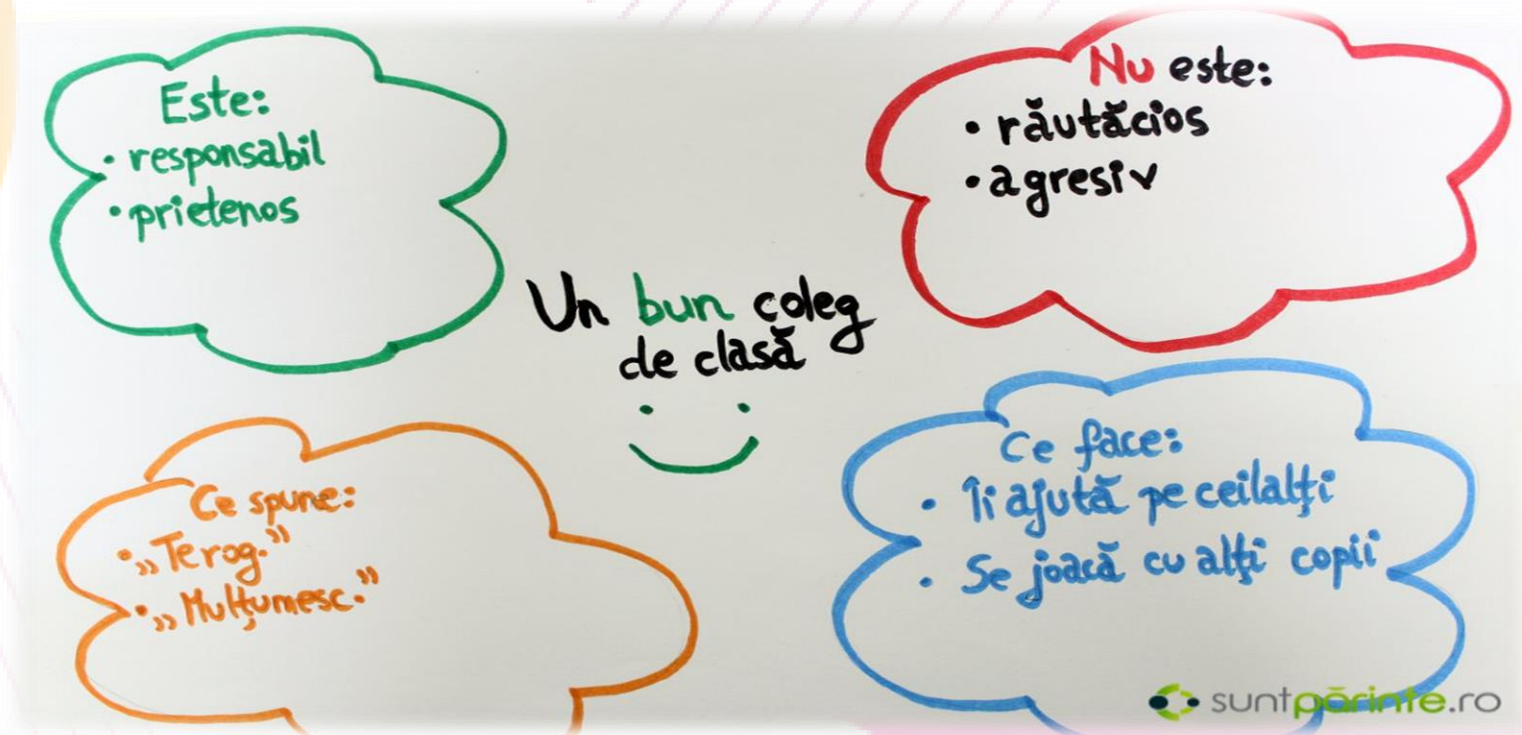 Este:
• responsabil
• prietenos
Nu este:
• răutăcios
• agresiv
Un bun coleg
de clasă
Ce spune:
• „Te rog.”
• „Mulțumesc.”
Ce face:
• Îi ajută pe ceilalți
• Se joacă cu alți copii
suntpărinte.ro